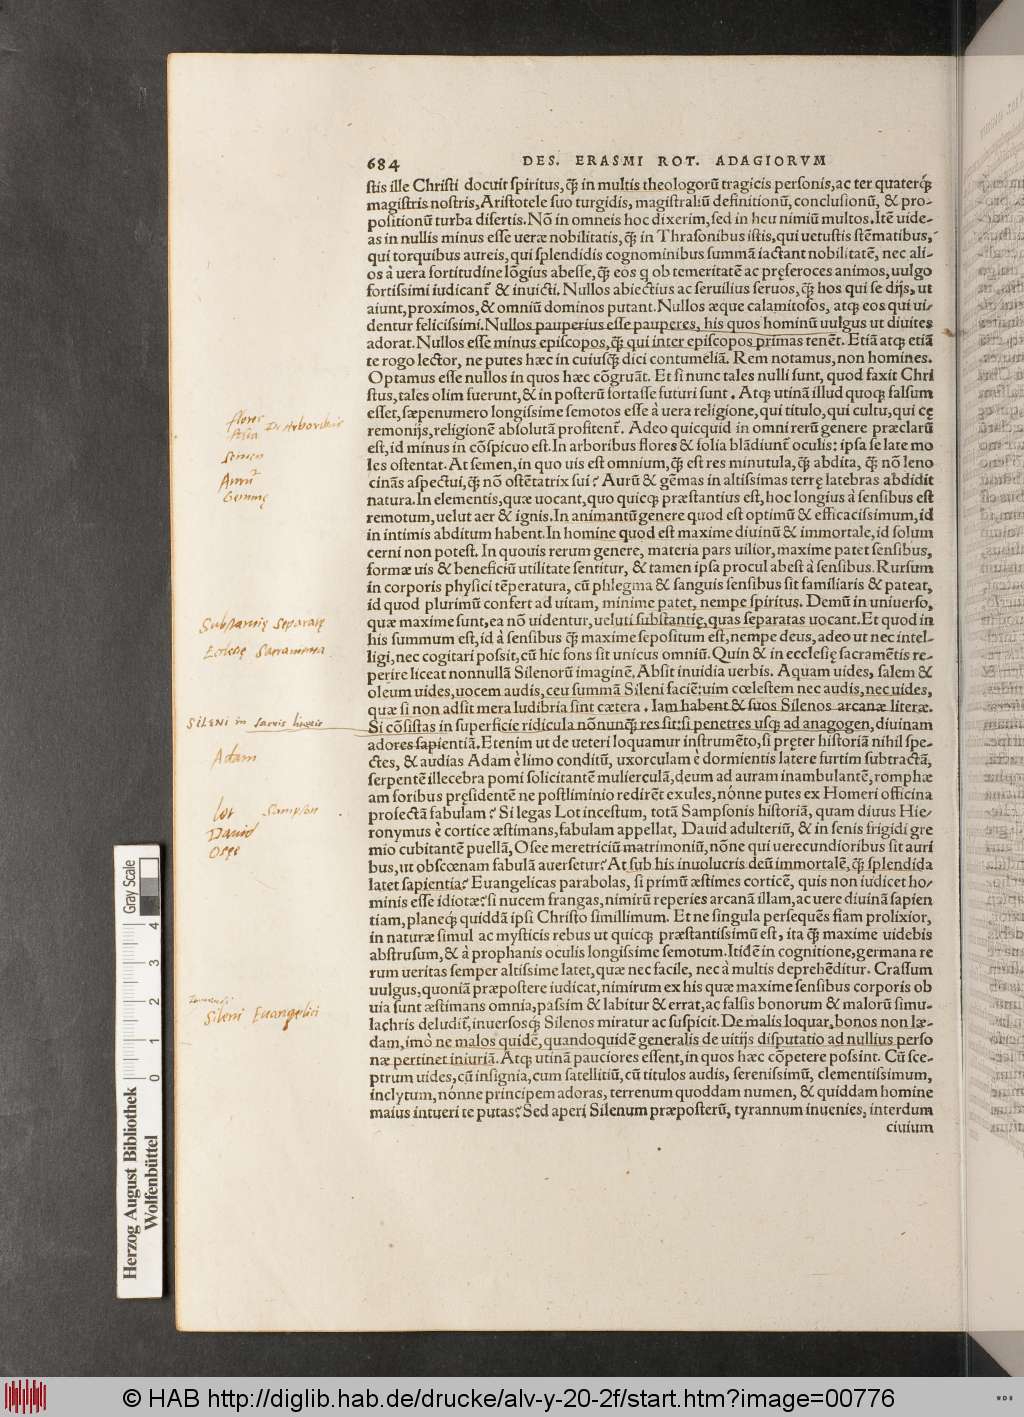 684 DES. ERASMI ROT. ADAGIORVM
stis ille Christi docuit spiritus, q̃ in multis theologorũ tragicis personis, ac ter quaterq́;
magistris nostris, Aristotele suo turgidis, magistraliũ definitionũ, conclusionũ, & pro-
positionũ turba disertis. Nõ in omneis hoc dixerim, sed in heu nimiũ multos. Itẽ uide-
as in nullis minus esse ueræ nobilitatis, q̃ in Thrasonibus istis, qui uetustis stẽmatibus,
qui torquibus aureis, qui splendidis cognominibus summã iactant nobilitatẽ, nec ali-
os à uera fortitudine lõgius abesse, q̃ eos q ob temeritatẽ ac pręferoces animos, uulgo
fortissimi iudicant̃ & inuicti. Nullos abiectius ac seruilius seruos, q̃ hos qui se dijs, ut
aiunt, proximos, & omniũ dominos putant. Nullos æque calamitosos, atq; eos qui ui-
dentur felicissimi. Nullos pauperius esse pauperes, his quos hominũ uulgus ut diuites
adorat. Nullos esse minus episcopos, q̃ qui inter episcopos primas tenẽt. Etiã atq; etiã
te rogo lector, ne putes hæc in cuiusq̃ dici contumeliã. Rem notamus, non homines.
Optamus esse nullos in quos hæc cõgruãt. Et si nunc tales nulli sunt, quod faxit Chri
stus, tales olim fuerunt, & in posterũ fortasse futuri sunt. Atq; utinã illud quoq; falsum
esset, sæpenumero longissime semotos esse à uera religione, qui titulo, qui cultu, qui cę
remonijs, religionẽ absolutã profitent̃. Adeo quicquid in omni rerũ genere præclarũ
est, id minus in cõspicuo est. In arboribus flores & folia blãdiunt̃ oculis: ipsa se late mo
les ostentat. At semen, in quo uis est omnium, q̃ est res minutula, q̃ abdita, q̃ nõ leno
cinãs aspectui, q̃ nõ ostẽtatrix sui? Aurũ & gẽmas in altissimas terrę latebras abdidit
natura. In elementis, quæ uocant, quo quicq; præstantius est, hoc longius à sensibus est
remotum, uelut aer & ignis. In animantũ genere quod est optimũ & efficacissimum, id
in intimis abditum habent. In homine quod est maxime diuinũ & immortale, id solum
cerni non potest. In quouis rerum genere, materia pars uilior, maxime patet sensibus,
formæ uis & beneficiũ utilitate sentitur, & tamen ipsa procul abest à sensibus. Rursum
in corporis physici tẽperatura, cũ phlegma & sanguis sensibus sit familiaris & pateat,
id quod plurimũ confert ad uitam, minime patet, nempe spiritus. Demũ in uniuerso,
quæ maxime sunt, ea nõ uidentur, ueluti substantię, quas separatas uocant. Et quod in
his summum est, id à sensibus q̃ maxime sepositum est, nempe deus, adeo ut nec intel-
ligi, nec cogitari possit, cũ hic fons sit unicus omniũ. Quin & in ecclesię sacramẽtis re-
perire liceat nonnullã Silenorũ imaginẽ. Absit inuidia uerbis. Aquam uides, salem &
oleum uides, uocem audis, ceu summã Sileni faciẽ: uim cœlestem nec audis, nec uides,
quæ si non adsit mera ludibria sint cætera. Iam habent & suos Silenos arcanæ literæ.
Si cõsistas in superficie ridicula nõnunq̃ res sit: si penetres usq; ad anagogen, diuinam
adores sapientiã. Etenim ut de ueteri loquamur instrumẽto, si pręter historiã nihil spe-
ctes, & audias Adam è limo conditũ, uxorculam è dormientis latere furtim subtractã,
serpentẽ illecebra pomi solicitantẽ mulierculã, deum ad auram inambulantẽ, romphæ
am foribus pręsidentẽ ne postliminio redirẽt exules, nónne putes ex Homeri officina
profectã fabulam? Si legas Lot incestum, totã Sampsonis historiã, quam diuus Hie-
ronymus è cortice æstimans, fabulam appellat, Dauid adulteriũ, & in senis frigidi gre
mio cubitantẽ puellã, Osee meretriciũ matrimoniũ, nõne qui uerecundioribus sit auri
bus, ut obscœnam fabulã auersetur? At sub his inuolucris deũ immortalẽ, q̃ splendida
latet sapientia? Euangelicas parabolas, si primũ æstimes corticẽ, quis non iudicet ho-
minis esse idiotæ? si nucem frangas, nimirũ reperies arcanã illam, ac uere diuinã sapien
tiam, planeq́; quiddã ipsi Christo simillimum. Et ne singula persequẽs fiam prolixior,
in naturæ simul ac mysticis rebus ut quicq; præstantissimũ est, ita q̃ maxime uidebis
abstrusum, & à prophanis oculis longissime semotum. Itidẽ in cognitione, germana re
rum ueritas semper altissime latet, quæ nec facile, nec à multis deprehẽditur. Crassum
uulgus, quoniã præpostere iudicat, nimirum ex his quæ maxime sensibus corporis ob
uia sunt æstimans omnia, passim & labitur & errat, ac falsis bonorum & malorũ simu-
lachris deludit̃, inuersosq́; Silenos miratur ac suspicit. De malis loquar, bonos non læ-
dam, imò ne malos quidẽ, quandoquidẽ generalis de uitijs disputatio ad nullius perso
næ pertinet iniuriã. Atq; utinã pauciores essent, in quos hæc cõpetere possint. Cũ sce-
ptrum uides, cũ insignia, cum satellitiũ, cũ titulos audis, serenissimũ, clementissimum,
inclytum, nónne principem adoras, terrenum quoddam numen, & quiddam homine
maius intueri te putas? Sed aperi Silenum præposterũ, tyrannum inuenies, interdum
ciuium
flores
folia De Arboribus
Semen
Aurũ
Gemmę
Substantię Separatę
Ecclesię Sacramenta
SILENI in sacris literis
Adam
Lot Sampson
Dauid
Osęę
Sileni Euangelici
Gray Scale
4 3 2 1 0
Herzog August Bibliothek
Wolfenbüttel
© HAB http://diglib.hab.de/drucke/alv-y-20-2f/start.htm?image=00776